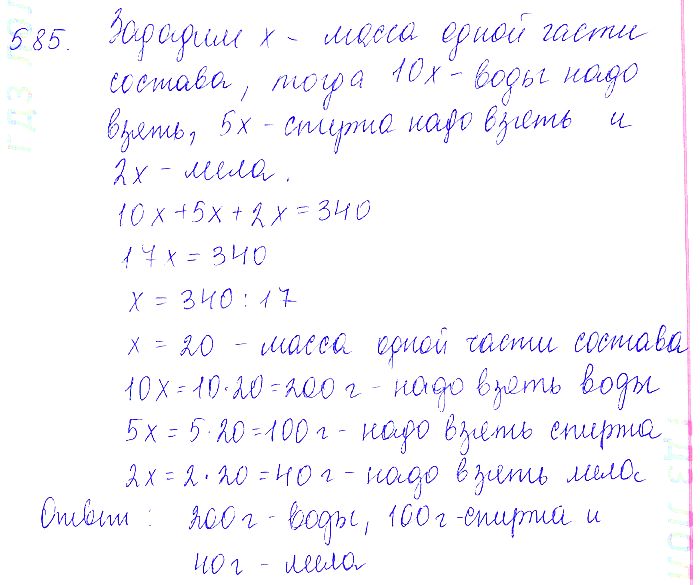 585. Зададим x - масса одной части
состава, тогда 10x - воды надо
взять, 5x - спирта надо взять и
2x - мела.
10x + 5x + 2x = 340
17x = 340
x = 340 : 17
x = 20 - масса одной части состава
10x = 10·20 = 200 г - надо взять воды
5x = 5·20 = 100 г - надо взять спирта
2x = 2·20 = 40 г - надо взять мела
Ответ : 200 г - воды, 100 г - спирта и
40 г - мела